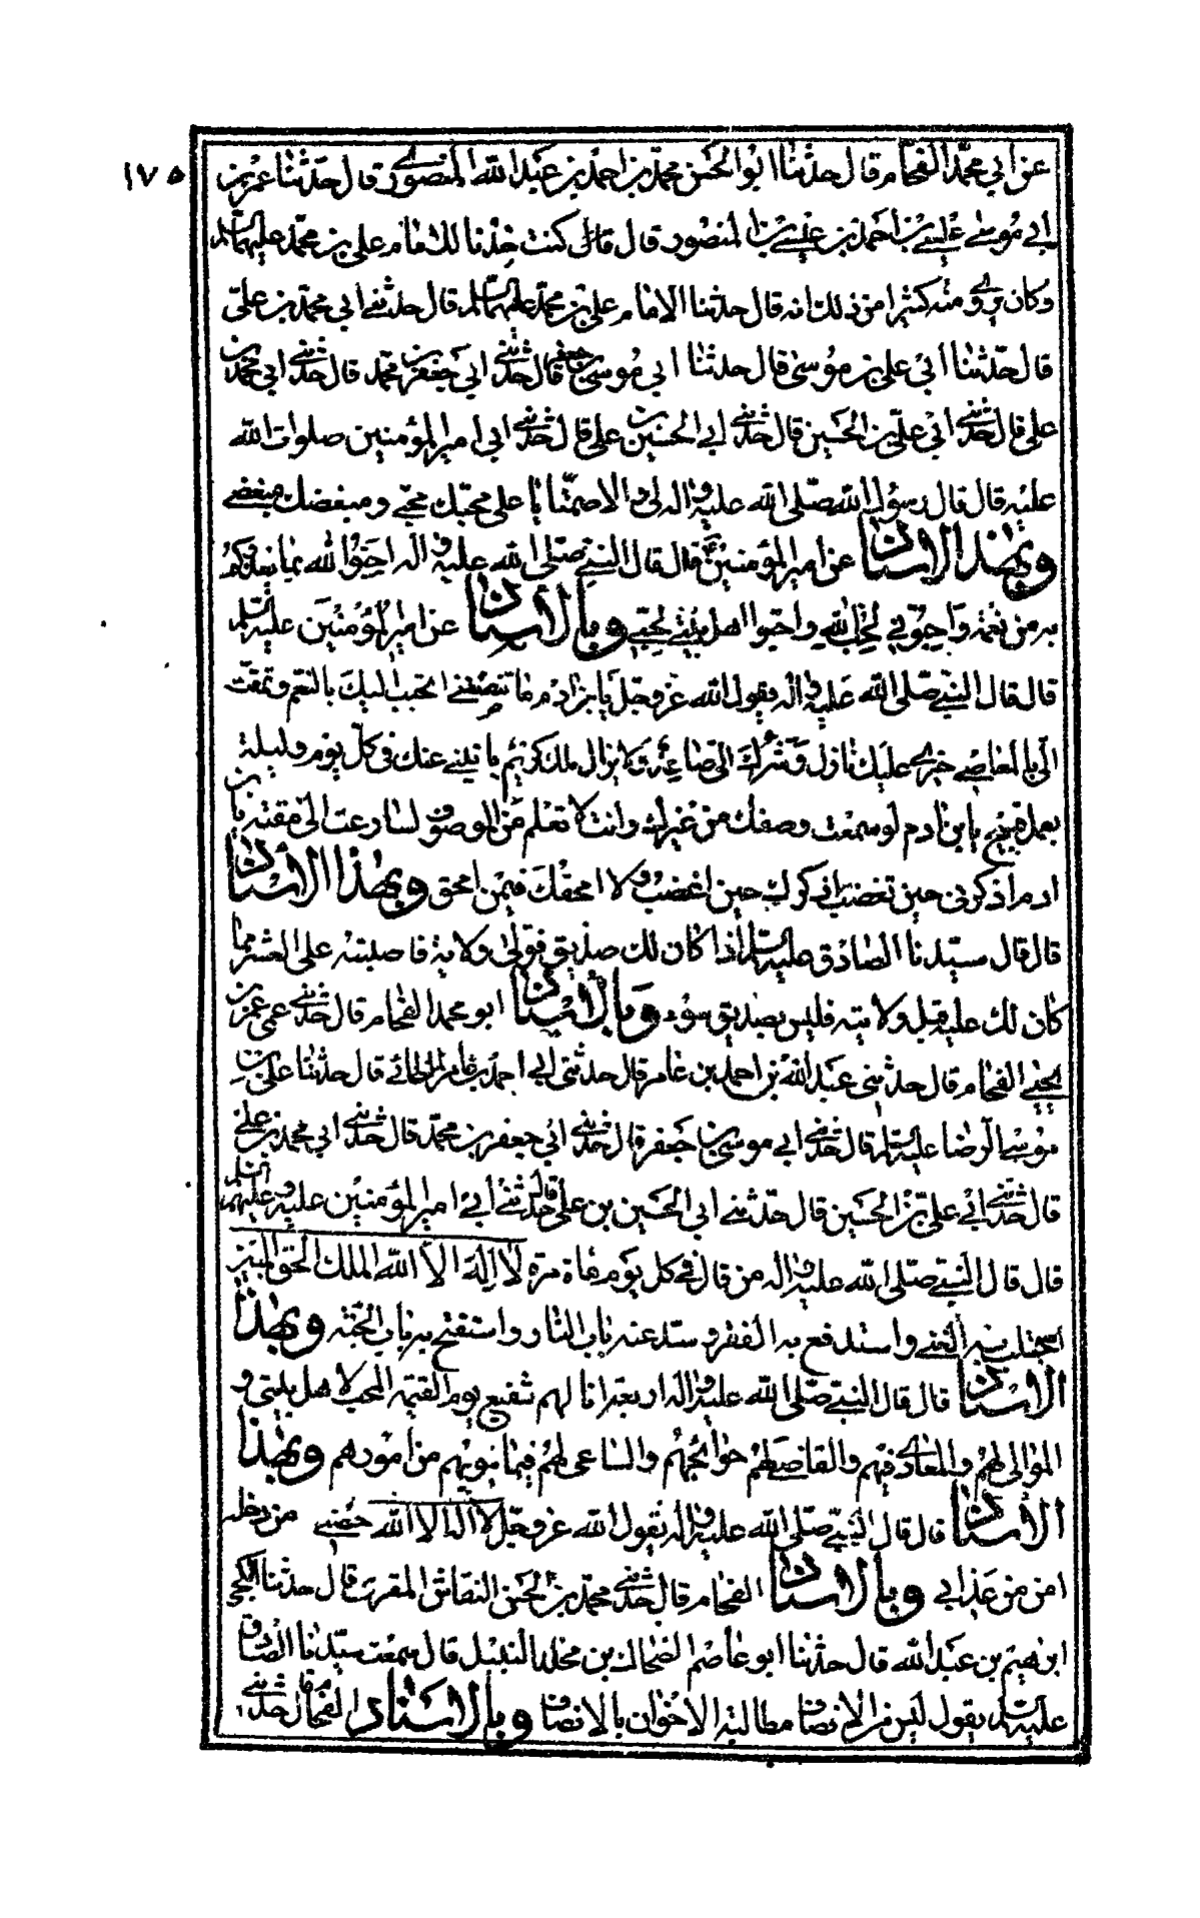 ١٧٥
عن ابي محمد الفحام قال حدثنا ابو الحسن محمد بن احمد بن عبد الله المنصوري قال حدثنا عمر بن
ابي موسى عيسى بن احمد بن عيسى بن المنصور قال قال كنت خدنا للامام علي بن محمد عليهما السلم
وكان يروي منه كثيرا من ذلك انه قال حدثنا الامام علي بن محمد عليهما السلم قال حدثني ابي محمد بن علي
قال حدثنا ابي علي بن موسى قال حدثنا ابي موسى بن جعفر قال حدثني ابي جعفر بن محمد قال حدثني ابي محمد بن
علي قال حدثني ابي علي بن الحسين قال حدثني ابي الحسين بن علي قال حدثني ابي امير المؤمنين صلوات الله
عليه قال قال رسول الله صلى الله عليه واله لي والا صمتا يا علي محبك محبي ومبغضك مبغضي
وبهذا الاسناد عن امير المؤمنين قال قال النبي صلى الله عليه واله احبوا الله بما يغذوكم
به من نعمه واحبوني لحب الله واحبوا اهل بيتي لحبي وبالاسناد عن امير المؤمنين عليه السلم
قال قال النبي صلى الله عليه واله يقول الله عز وجل يا بن ادم ما تنصفني اتحبب اليك بالنعم وتتمقت
الي بالمعاصي خيري عليك نازل وشرك الي صاعد ولا يزال ملك كريم ياتيني عنك في كل يوم وليلة
بعمل قبيح يا بن ادم لو سمعت وصفك من غيرك وانت لا تعلم من الموصوف لسارعت الى مقته يا بن
ادم اذكرني حين تغضب اذكرك حين اغضب ولا امحقك فيمن امحق وبهذا الاسناد
قال قال سيدنا الصادق عليه السلم اذا كان لك صديق فتولى ولاية فاصبته على العشر مما
كان لك عليه قبل ولايته فليس بصديق سوء وبالاسناد ابو محمد الفحام قال حدثني عمي عمر بن
يحيى الفحام قال حدثني عبد الله بن احمد بن عامر قال حدثني ابي احمد بن عامر الطائي قال حدثنا علي بن
موسى الرضا عليه السلم قال حدثني ابي موسى بن جعفر قال حدثني ابي جعفر بن محمد قال حدثني ابي محمد بن علي
قال حدثني ابي علي بن الحسين قال حدثني ابي الحسين بن علي قال حدثني ابي امير المؤمنين عليه وعليهم السلم
قال قال النبي صلى الله عليه واله من قال في كل يوم مائة مرة لا اله الا الله الملك الحق المبين
استجلب به الغنى واستدفع به الفقر وسد عنه باب النار واستفتح به باب الجنة وبهذا
الاسناد قال قال النبي صلى الله عليه واله اربعة انا لهم شفيع يوم القيمة المحب لاهل بيتي و
الموالي لهم والمعادي فيهم والقاضي لهم حوائجهم والساعي لهم فيما ينوبهم من امورهم وبهذا
الاسناد قال قال النبي صلى الله عليه واله يقول الله عز وجل لا اله الا الله حصني من دخله
امن من عذابي وبالاسناد الفحام قال حدثني محمد بن الحسن النقاش المقري قال حدثنا الكجي
ابرهيم بن عبد الله قال حدثنا ابو عاصم الضحاك بن مخلد النبيل قال سمعت سيدنا الصادق
عليه السلم يقول ليس من الانصاف مطالبة الاخوان بالانصاف وبالاسناد الفحام قال حدثني